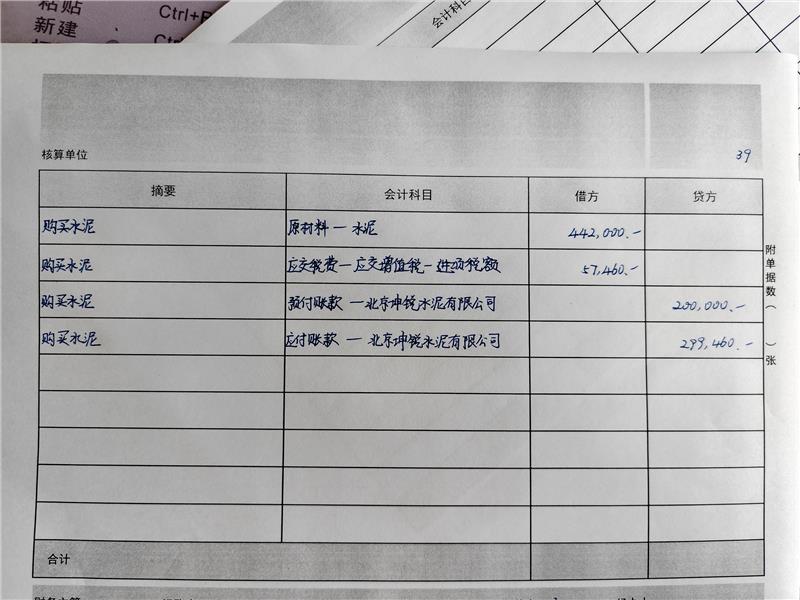 粘贴
Ctrl+
新建
Ct
会计科目
核算单位 39
摘要 会计科目 借方 贷方
购买水泥 原材料—水泥 442,000.-
购买水泥 应交税费—应交增值税—进项税额 57,460.-
购买水泥 预付账款—北京坤锐水泥有限公司 200,000.-
购买水泥 应付账款—北京坤锐水泥有限公司 299,460.-
附单据数( )张
合计